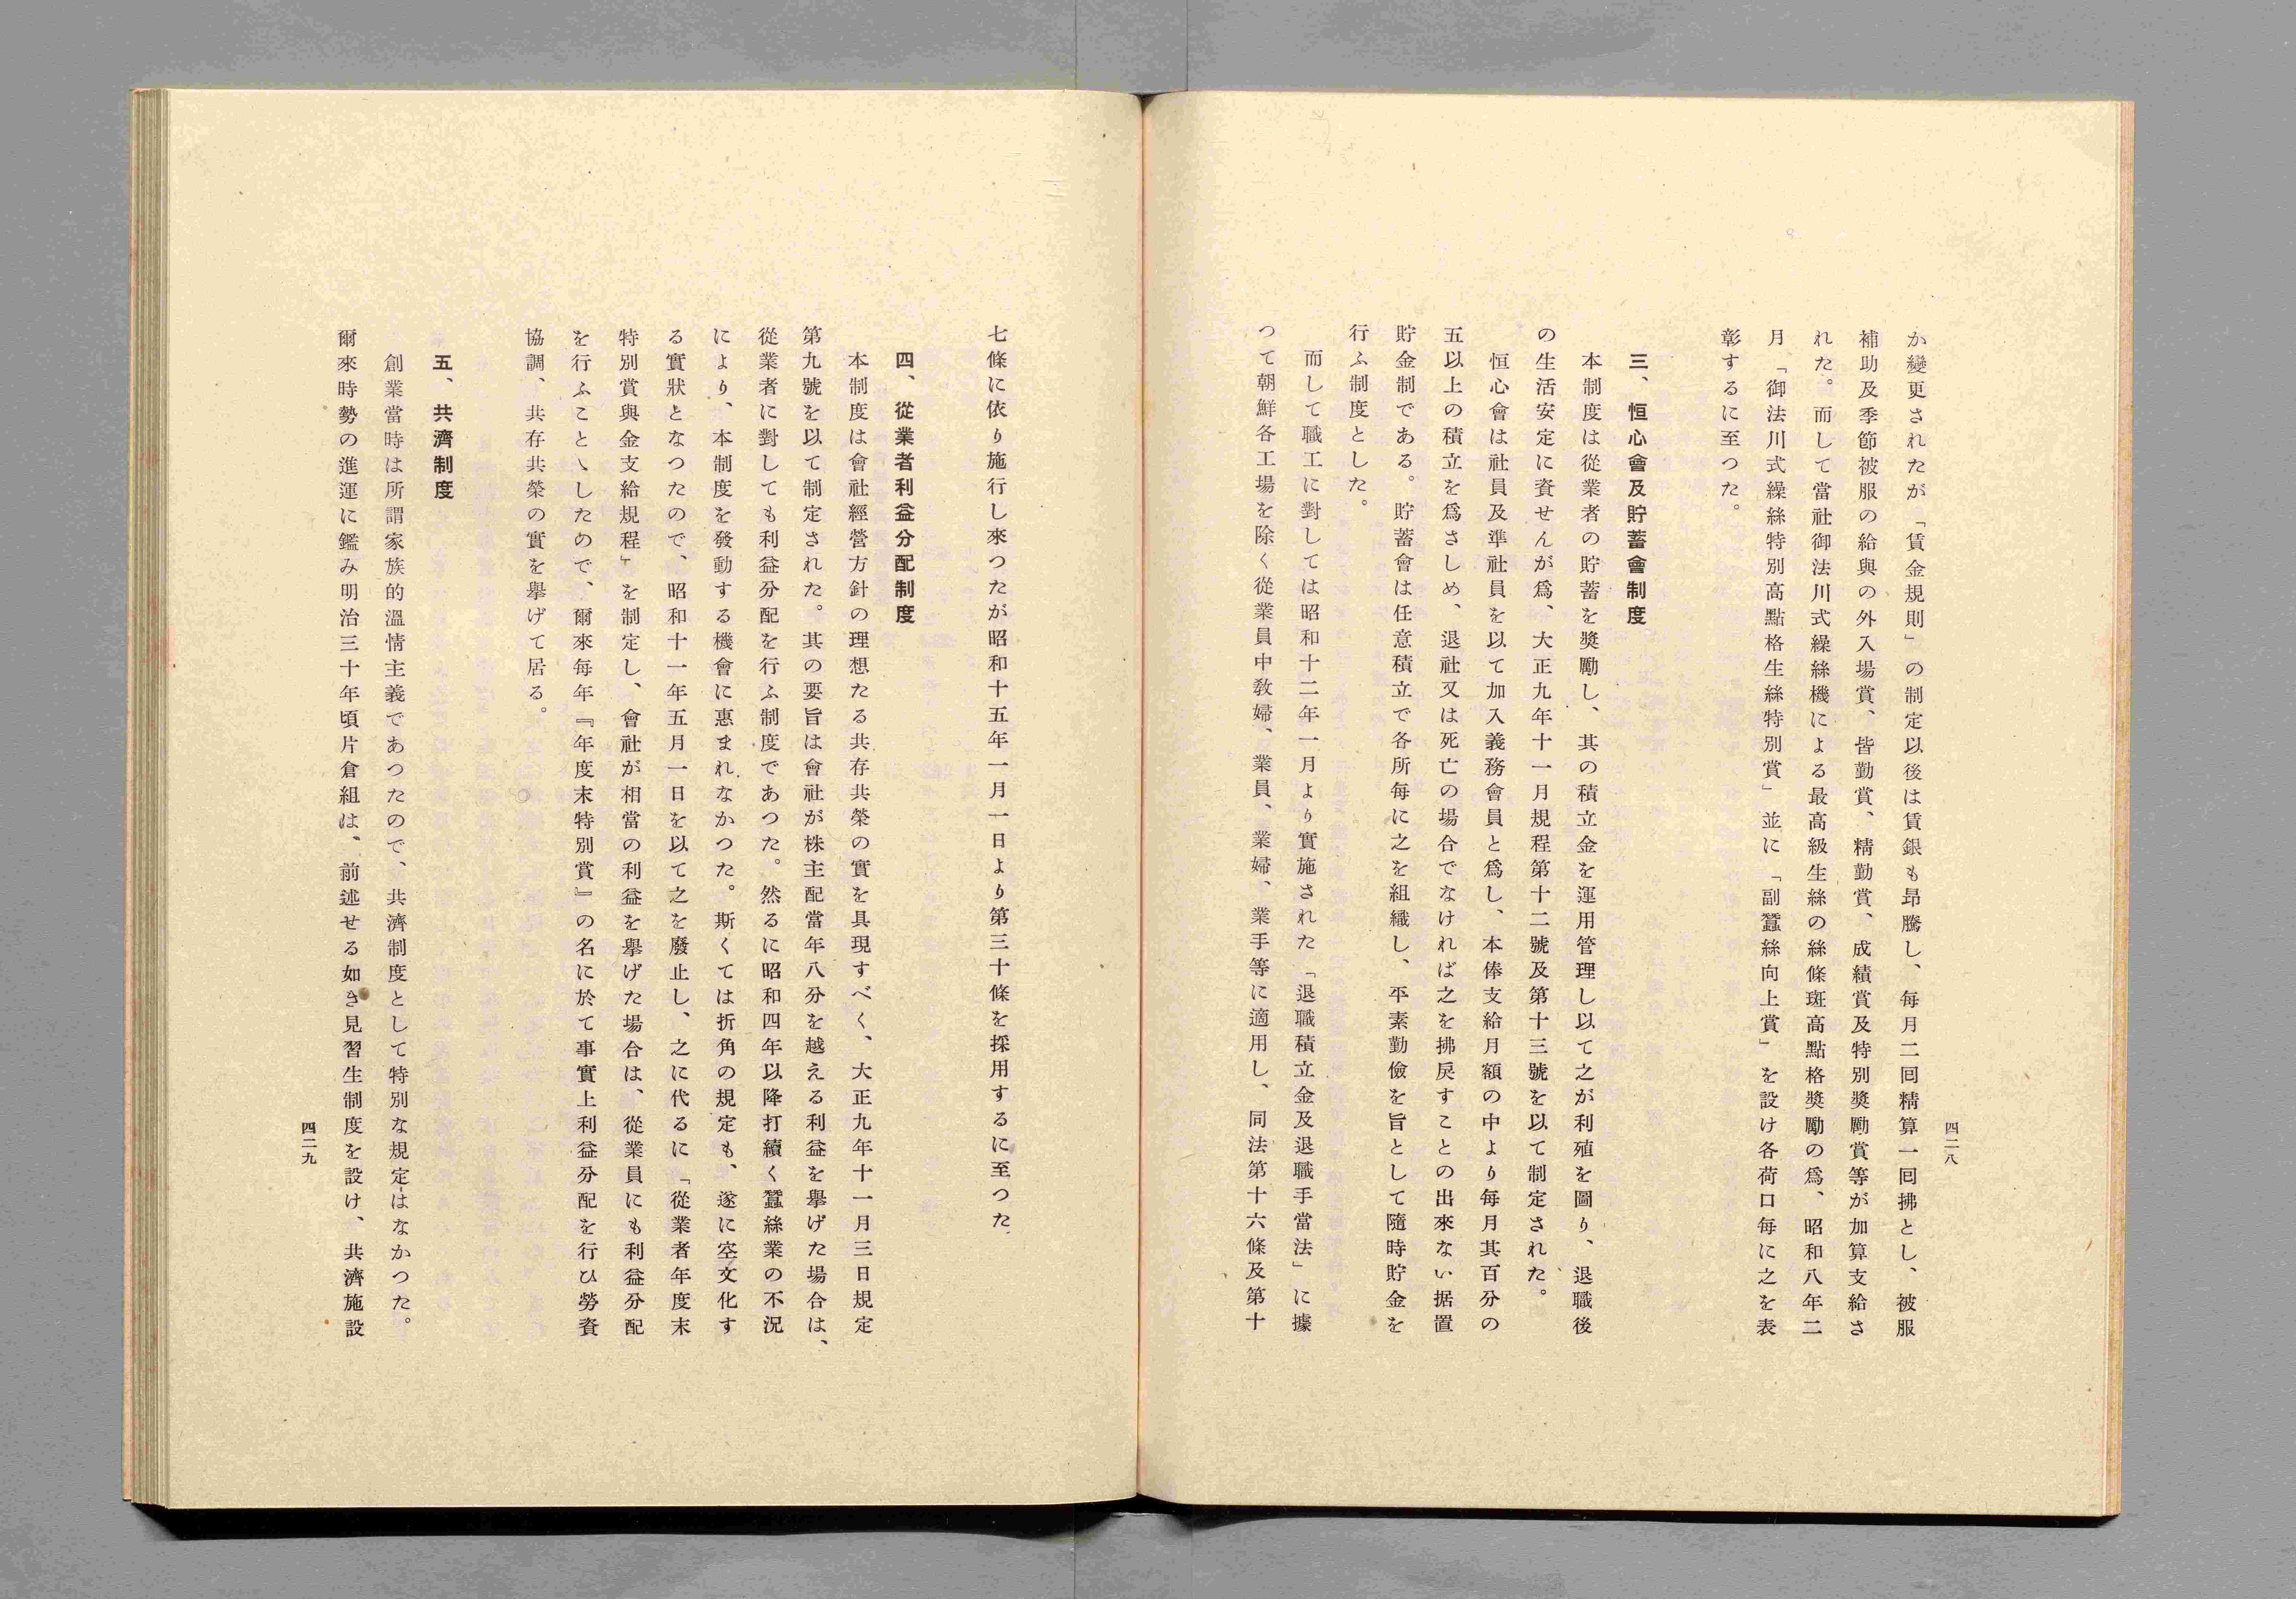 四二八
か變更されたが「賃金規則」の制定以後は賃銀も昻騰し、每月二回精算一回拂とし、被服
補助及季節被服の給與の外入場賞、皆勤賞、精勤賞、成績賞及特別奬勵賞等が加算支給さ
れた。而して當社御法川式繰絲機による最高級生絲の絲條斑高點格奬勵の爲、昭和八年二
月「御法川式繰絲特別高點格生絲特別賞」並に「副蠶絲向上賞」を設け各荷口每に之を表
彰するに至つた。
三、恒心會及貯蓄會制度
本制度は從業者の貯蓄を奬勵し、其の積立金を運用管理し以て之が利殖を圖り、退職後
の生活安定に資せんが爲、大正九年十一月規程第十二號及第十三號を以て制定された。
恒心會は社員及準社員を以て加入義務會員と爲し、本俸支給月額の中より每月其百分の
五以上の積立を爲さしめ、退社又は死亡の場合でなければ之を拂戾すことの出來ない据置
貯金制である。貯蓄會は任意積立で各所每に之を組織し、平素勤儉を旨として隨時貯金を
行ふ制度とした。
而して職工に對しては昭和十二年一月より實施された「退職積立金及退職手當法」に據
つて朝鮮各工場を除く從業員中敎婦、業員、業婦、業手等に適用し、同法第十六條及第十
七條に依り施行し來つたが昭和十五年一月一日より第三十條を採用するに至つた。
四、從業者利益分配制度
本制度は會社經營方針の理想たる共存共榮の實を具現すべく、大正九年十一月三日規定
第九號を以て制定された。其の要旨は會社が株主配當年八分を越える利益を擧げた場合は、
從業者に對しても利益分配を行ふ制度であつた。然るに昭和四年以降打續く蠶絲業の不況
により、本制度を發動する機會に惠まれなかつた。斯くては折角の規定も、遂に空文化す
る實狀となつたので、昭和十一年五月一日を以て之を廢止し、之に代るに「從業者年度末
特別賞與金支給規程」を制定し、會社が相當の利益を擧げた場合は、從業員にも利益分配
を行ふことゝしたので、爾來每年『年度末特別賞』の名に於て事實上利益分配を行ひ勞資
協調、共存共榮の實を擧げて居る。
五、共濟制度
創業當時は所謂家族的溫情主義であつたので、共濟制度として特別な規定はなかつた。
爾來時勢の進運に鑑み明治三十年頃片倉組は、前述せる如き見習生制度を設け、共濟施設
四二九